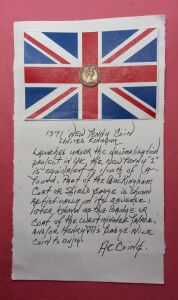 1971 New Penny Coin
United Kingdom
Launched under the decimalisation
project in UK, the New Penny "1"
is equivalent to 1/100th of a
Pound. That of the Buckingham
Coat or Shield Badge is shown
artistically on its reverse.
Later known as the Badge or
Coat of the Westminster Table
and/or Henry VII's Badge. Nice
Coin to enjoy.
AC Coins